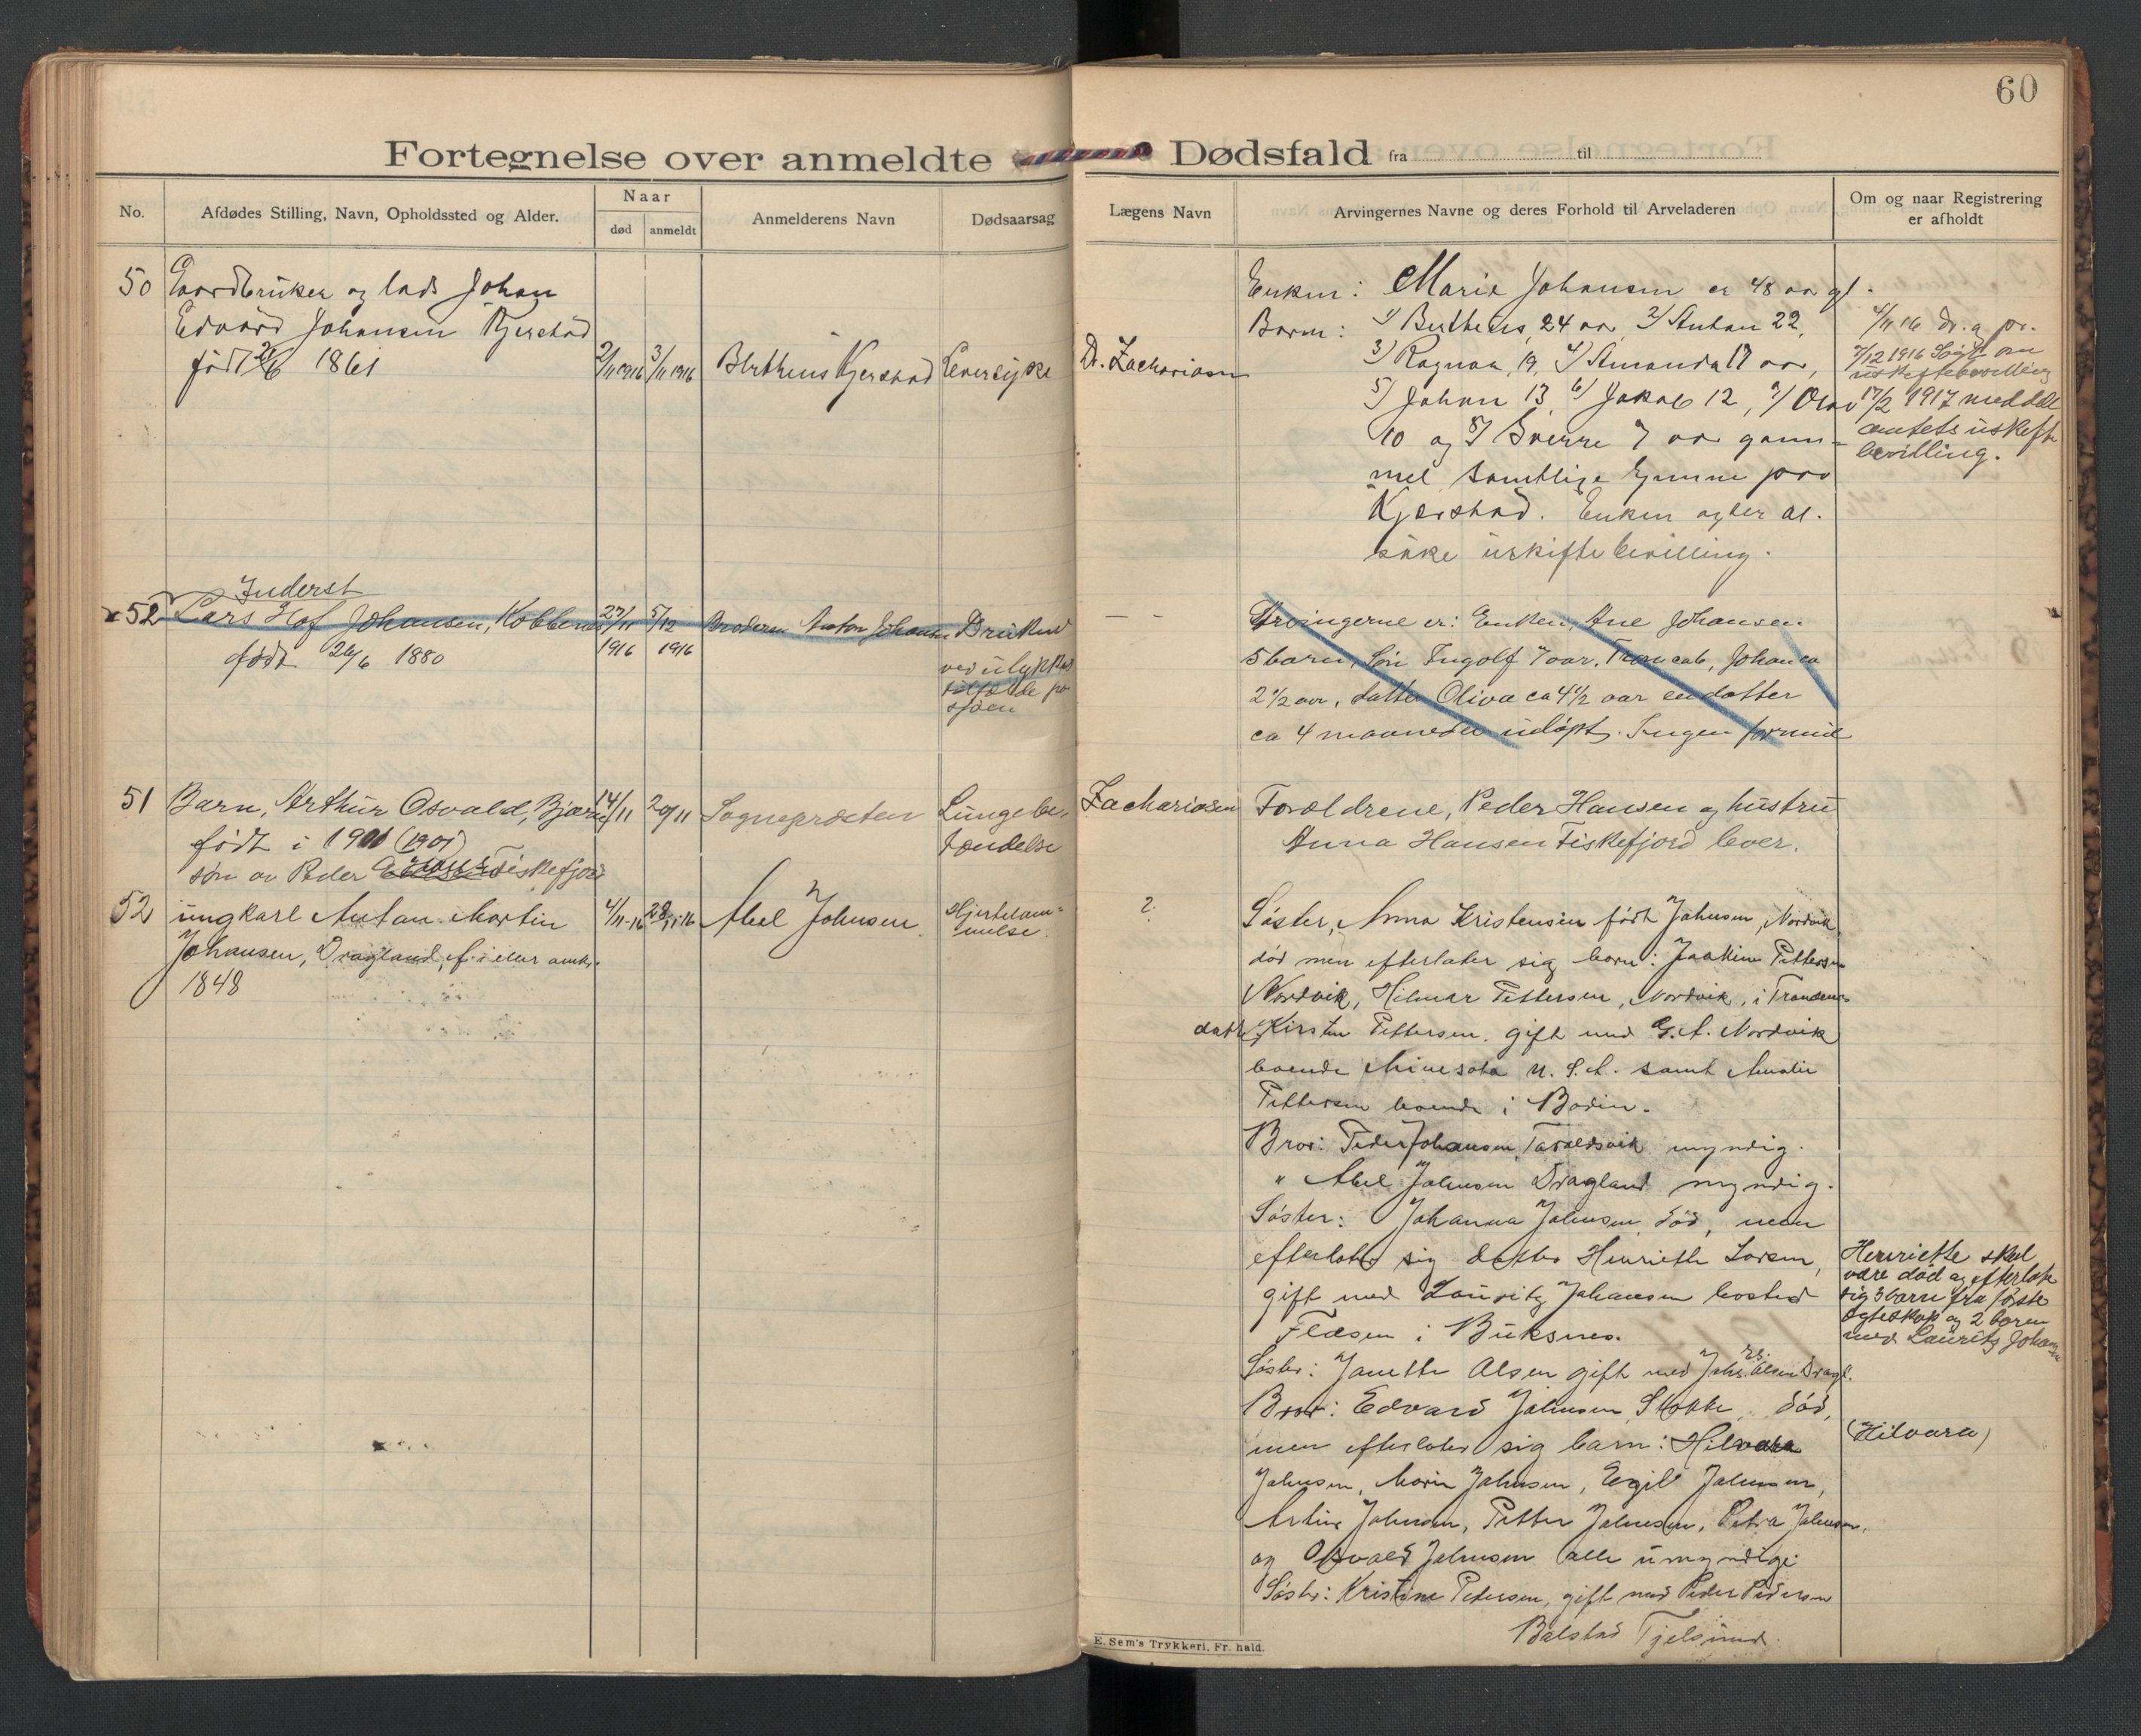 60
Fortegnelse over anmeldte Dødsfald fra til
No.
Afdødes Stilling, Navn, Opholdssted og Alder.
Naar
død
anmeldt
Anmelderens Navn
Dødsaarsag
Lægens Navn
Arvingernes Navne og deres Forhold til Arveladeren
Om og naar Registrering
er afholdt
50 Gaardbruker og lods Johan
Edvard Johansen Kjerstad
født 2/6 1861
2/11 1916
3/11 1916
Bertheus Kjerstad
Leversyke
Dr. Zachariasen
Enken: Marie Johansen er 48 aar gl.
Barn: 1) Bertheus, 24 aar, 2) Anton 22,
3) Ragna, 19, 4) Amanda 17 aar,
5) Johan 13, 6) Jakob 12, 7) Olav
10 og 8) Sverre 7 aar gam-
mel samtlige hjemme paa
Kjerstad. Enken agter at
søke uskiftebevilling.
4/11 16 dr. a pr.
7/12 1916 Søgt om
uskiftebevilling
17/2 1917 meddelt
amtets uskifte
bevilling.
Inderst
52 Lars Hof Johansen, Kobbenes
født 26/6 1880
27/11
1916
5/12
1916
Broderen Anton Johansen
Druknet
ved ulykkes
tilfælde paa
sjøen
— —
Arvingerne er: Enken, Ane Johansen.
5 barn, Søn Ingolf 7 aar, ca 6, Johan ca
2 1/2 aar, datter Oliva ca 4 1/2 aar en datter
ca 4 maaneder udøpt. Ingen formue
51 Barn, Arthur Osvald, Bjørn
født i 1901 (1901)
søn av Peder Fiskefjord
14/11
20/11
Sognepresten
Lungebe-
tændelse
Zachariasen
Forældrene, Peder Hansen og hustru
Anna Hansen Fiskefjord lever.
52 ungkarl Anton Martin
Johansen, Dragland, f. i eller omkr.
1848
4/11-16
28/11-16
Abel Johnsen
Hjertelam-
melse.
?
Søster, Anna Kristensen født Johnsen, Nordvik
død men efterlater sig barn: Joakim Pettersen
Nordvik, Hilmar Pettersen, Nordvik, i Trondenes
datter Kirsten Pettersen, gift med G. A. Nordvik
boende Minesota U. S. A. samt Amalie
Pettersen boende i Bodin.
Bror: Peder Johansen, Taraldsvik myndig.
" Abel Johnsen Dragland myndig.
Søster: Johanna Johnsen, død, men
efterlater sig datter Henriette Larsen,
gift med Lauritz Johansen bosted
Flæsen i Buksnes.
Henriette skal
være død og efterlate
sig 3 barn fra første
egteskap og 2 barn
med Laurits Johansen
Søster: Janette Olsen gift med Johs. Olsen Dragl.
Bror: Edvard Johnsen, Stokke, død,
men efterlater sig barn: Hilvara
(Hilvara)
Johnsen, Marie Johnsen, Egil Johnsen,
Artur Johnsen, Petter Johnsen, Petra Johnsen,
og Osvald Johnsen alle umyndige
Søster: Kristine Pedersen, gift med Peder Pedersen
Balstad Tjelsund.
E. Sem's Trykkeri, Fr. hald.